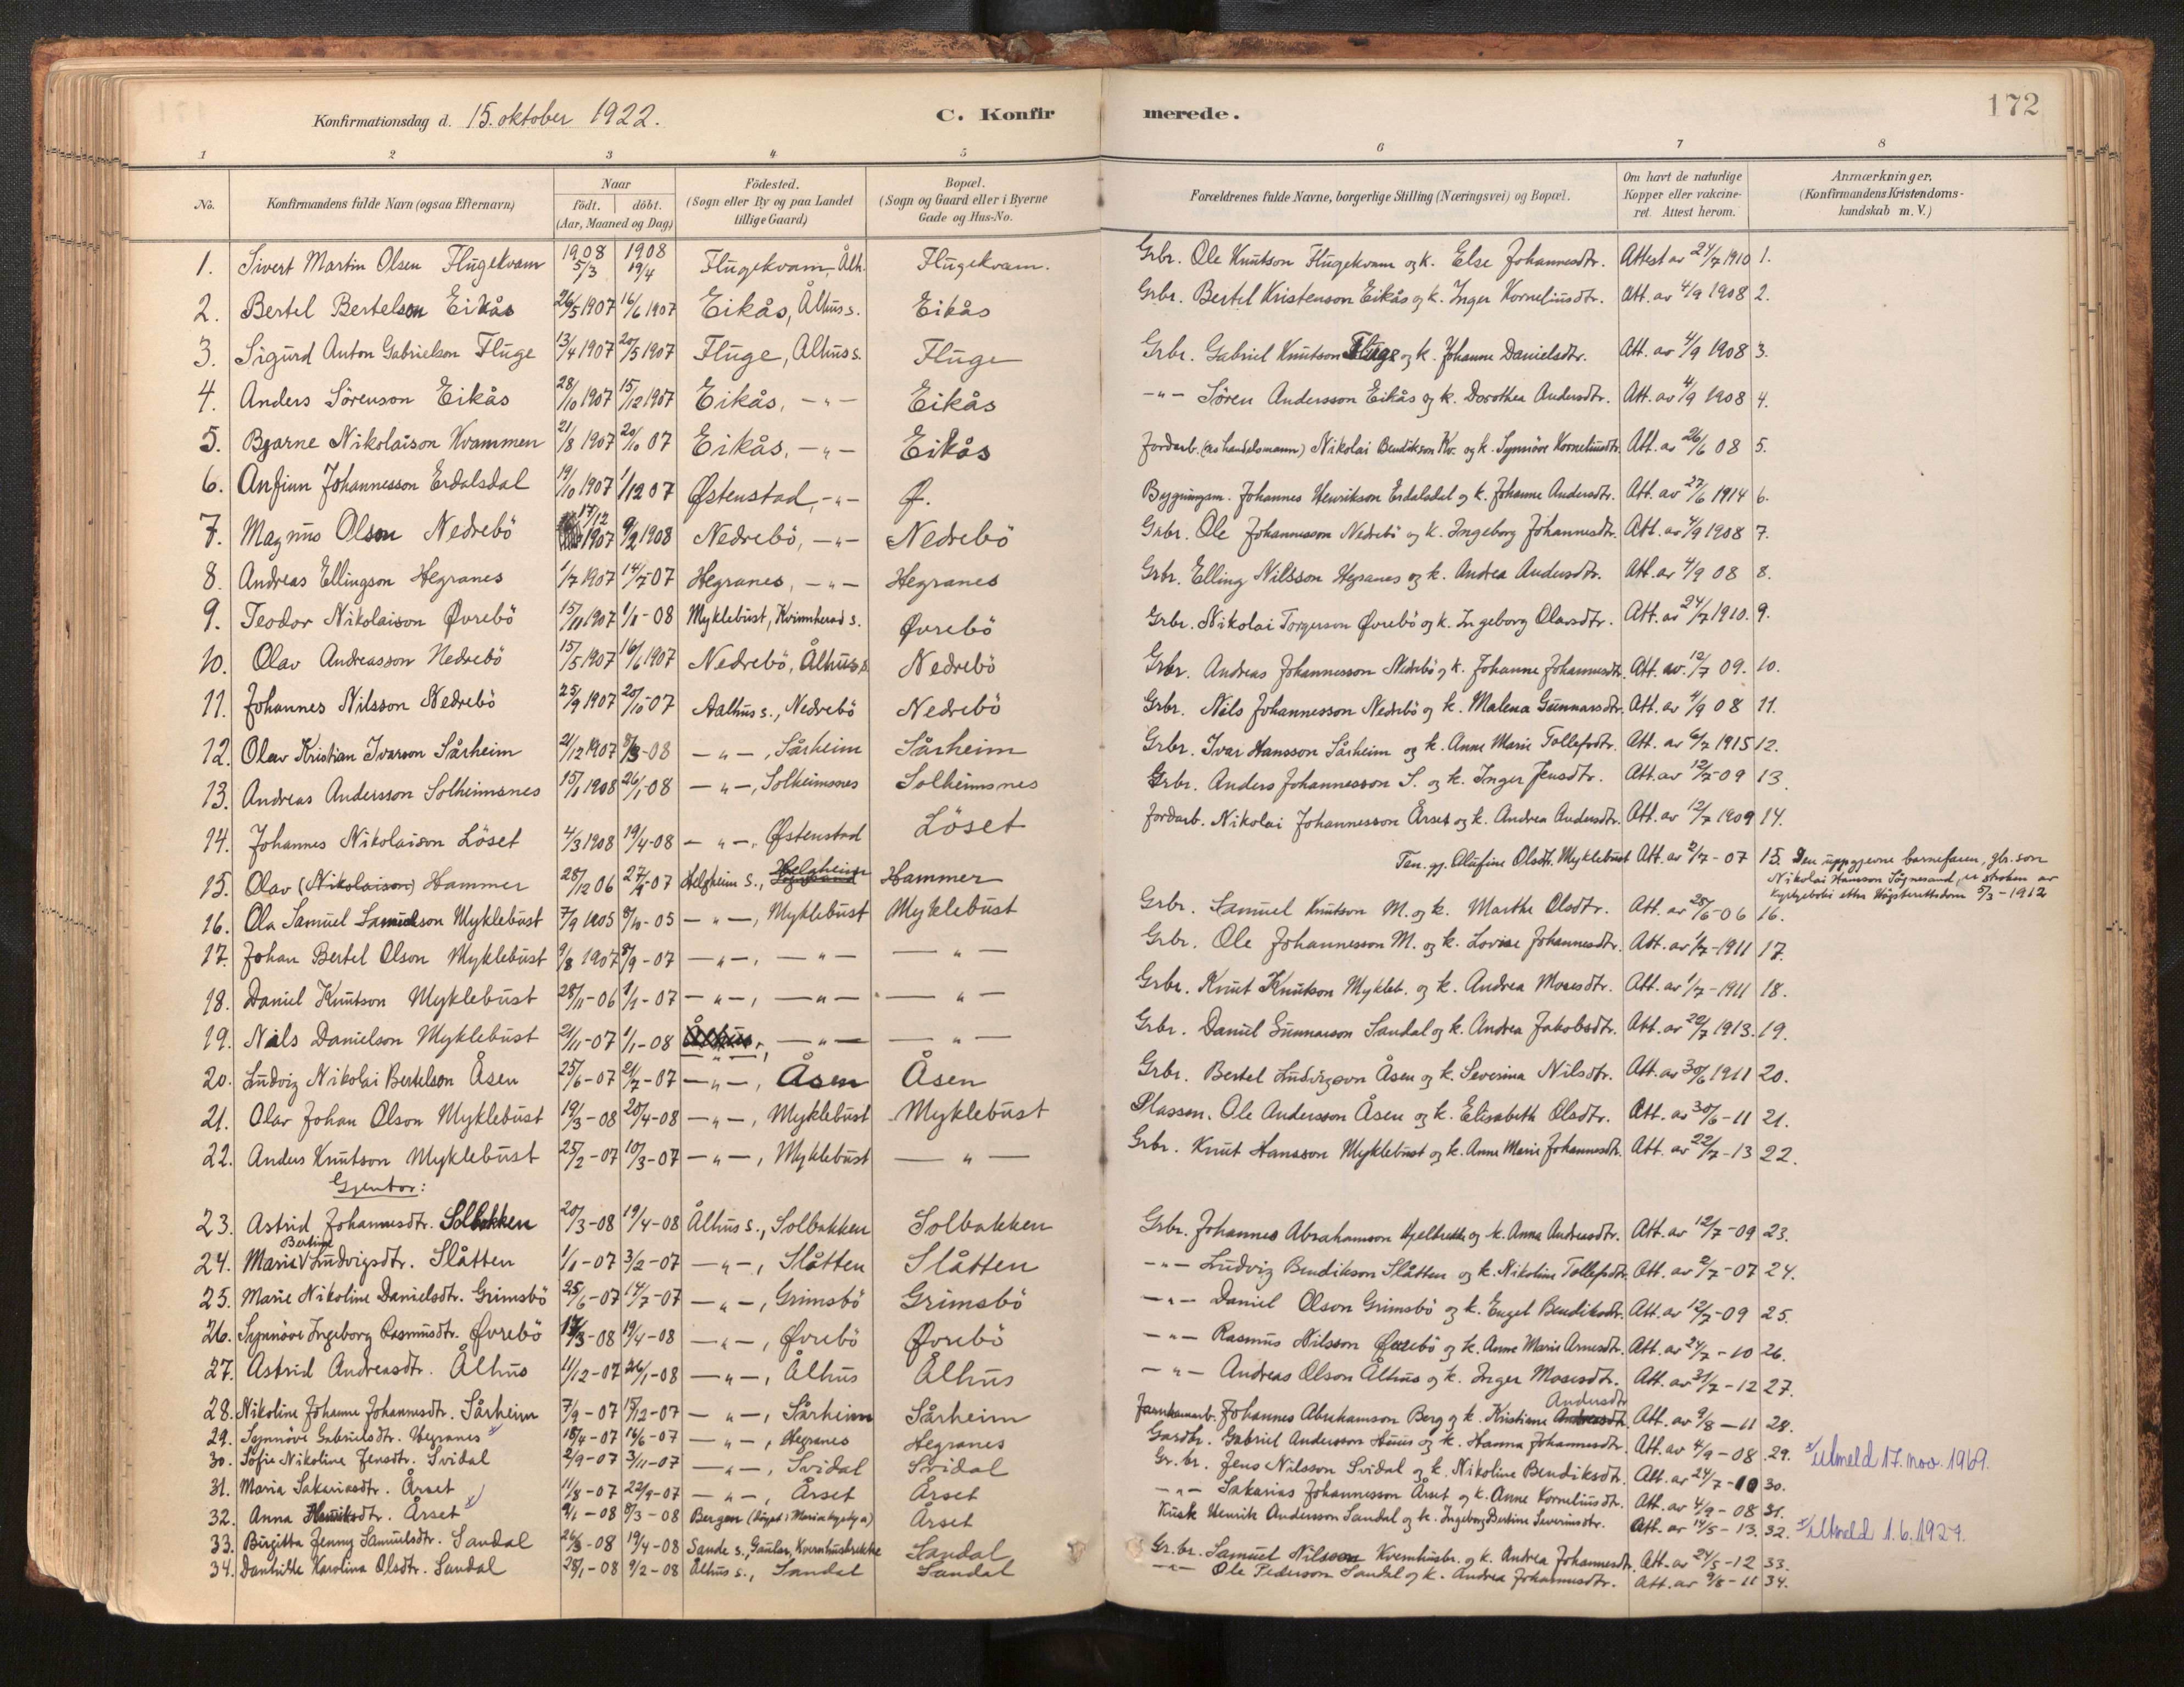 172
Konfirmationsdag d. 15. oktober 1922. C. Konfirmerede.
1 2 3 4 5 6 7 8
No. Konfirmandens fulde Navn (ogsaa Efternavn) Naar födt. döbt. (Aar, Maaned og Dag) Födested. (Sogn eller By og paa Landet tillige Gaard) Bopæl. (Sogn og Gaard eller i Byerne Gade og Hus-No. Forældrenes fulde Navne, borgerlige Stilling (Næringsvei) og Bopæl. Om havt de naturlige Kopper eller vakcineret. Attest herom. Anmærkninger. (Konfirmandens Kristendomskundskab m. V.)
1. Sivert Martin Olsen Flugekvam 1908 5/3 1908 19/4 Flugekvam, Ålh. Flugekvam. Grbr. Ole Knutson Flugekvam og k. Else Johannesdtr. Attest av 24/7 1910 1.
2. Bertel Bertelson Eikås 26/5 1907 16/6 1907 Eikås, Ålhus s. Eikås Grbr. Bertel Kristenson Eikås og k. Inger Korneliusdtr. Att. av 4/9 1908 2.
3. Sigurd Anton Gabrielson Fluge 13/4 1907 20/5 1907 Fluge, Ålhus s. Fluge Grbr. Gabriel Knutson Fluge og k. Johanne Danielsdtr. Att. av 4/9 1908 3.
4. Anders Sörenson Eikås 28/10 1907 15/12 1907 Eikås, -"- Eikås -"- Sören Andersson Eikås og k. Dorothea Andersdtr. Att. av 4/9 1908 4.
5. Bjarne Nikolaison Kvammen 21/8 1907 20/10 07 Eikås, -"- Eikås Jordarb. (no handelsmann) Nikolai Bendikson Kv. og k. Synnöve Korneliusdtr. Att. av 26/6 08 5.
6. Anfinn Johannesson Erdalsdal 19/10 1907 1/12 07 Østenstad, -"- Ø. Bygningsm. Johannes Henrikson Erdalsdal og k. Johanne Andersdtr. Att. av 27/6 1914 6.
7. Magnus Olson Nedrebö 17/12 1907 9/2 1908 Nedrebö, -"- Nedrebö Grbr. Ole Johannesson Nedrebö og k. Ingeborg Johannesdtr. Att. av 4/9 1908 7.
8. Andreas Ellingson Hegranes 1/7 1907 14/7-07 Hegranes, -"- Hegranes Grbr. Elling Nilsson Hegranes og k. Andrea Andersdtr. Att. av 4/9 08 8.
9. Teodor Nikolaison Øvrebö 15/11 1907 1/1-08 Myklebust, Kvinnherad s. Øvrebö Grbr. Nikolai Torgerson Øvrebö og k. Ingeborg Olavsdtr. Att. av 24/7 1910. 9.
10. Olav Andreasson Nedrebö 15/5 1907 16/6 1907 Nedrebö, Ålhus s. Nedrebö Grbr. Andreas Johannesson Nedrebö og k. Johanne Johannesdtr. Att. av. 12/7 09. 10.
11. Johannes Nilsson Nedrebö 25/9 1907 20/10-07 Aalhus s., Nedrebö Nedrebö Grbr. Nils Johannesson Nedrebö og k. Malena Gunnarsdtr. Att. av 4/9 08 11.
12. Olav Kristian Ivarson Sårheim 21/12 1907 8/3-08 -"-, Sårheim Sårheim Grbr. Ivar Hansson Sårheim og k. Anne Marie Tollefsdtr. Att. av 6/7 1915 12.
13. Andreas Andersson Solheimsnes 15/1 1908 26/1-08 -"-, Solheimsnes Solheimsnes Grbr. Anders Johannesson S. og k. Inger Jensdtr. Att. av 12/7-09 13.
14. Johannes Nikolaison Löset 4/3 1908 19/4-08 -"-, Østenstad Löset Jordarb. Nikolai Johannesson Årset og k. Andrea Andersdtr. Att. av 12/7 1909 14.
15. Olav (Nikolaison) Hammer 28/12 06 27/1-07 Helgheim s., Helgheim Hammer Ten. gj. Olufine Olsdtr. Myklebust Att. av 2/7-07 15. Den uppgjevne barnefaren, gbr. son
Nikolai Hansson Sögnesand, er stroken av
kyrkjeboki etter Högsterettsdom 5/3-1912
16. Ola Samuel Samuelson Myklebust 7/9 1905 8/10-05 -"-, Myklebust Myklebust Grbr. Samuel Knutson M. og k. Marthe Olsdtr. Att. av 25/6-06 16.
17. Johan Bertel Olson Myklebust 9/8 1907 8/9-07 -"-, -"- -"- Grbr. Ole Johannesson M. og k. Lovise Johannesdtr. Att. av 1/7-1911 17.
18. Daniel Knutson Myklebust 28/11-06 1/1-07 -"-, -"- -"- Grbr. Knut Knutson Mykleb. og k. Andrea Mosesdtr. Att. av 1/7-1911 18.
19. Nils Danielson Myklebust 21/11-07 1/1-08 -"-, -"- -"- Grbr. Daniel Gunnarson Sandal og k. Andrea Jakobsdtr. Att. av 20/7 1913. 19.
20. Ludvig Nikolai Bertelson Åsen 25/6-07 21/7-07 -"-, Åsen Åsen Grbr. Bertel Ludvigson Åsen og k. Severina Nilsdtr. Att. av 30/6 1911 20.
21. Olav Johan Olson Myklebust 19/3-08 20/4-08 -"-, Myklebust Myklebust Plassm. Ole Andersson Åsen og k. Elisabeth Olsdtr. Att. av 30/6-11 21.
22. Anders Knutson Myklebust 25/2-07 10/3-07 -"-, Myklebust -"- Grbr. Knut Hansson Myklebust og k. Anne Marie Johannesdtr. Att. av 22/7-13 22.
Gjentor:
23. Astrid Johannesdtr. Solbakken 20/3-08 19/4-08 Ålhus s., Solbakken Solbakken Grbr. Johannes Abrahamson og k. Anna Andersdtr. Att. av 12/7-09 23.
24. Marie Bertine Ludvigsdtr. Slåtten 1/1-07 3/2-07 -"-, Slåtten Slåtten -"- Ludvig Bendikson Slåtten og k. Nikoline Tollefsdtr. Att. av 2/7-07 24.
25. Marie Nikoline Danielsdtr. Grimsbö 25/6-07 14/7-07 -"-, Grimsbö Grimsbö -"- Daniel Olson Grimsbö og k. Engel Bendiksdtr. Att. av 12/7-09 25.
26. Synnöve Ingeborg Rasmusdtr. Øvrebö 14/3-08 19/4-08 -"-, Øvrebö Øvrebö -"- Rasmus Nilsson Øvrebö og k. Anne Marie Arnesdtr. Att. av 24/7-10 26.
27. Astrid Andreasdtr. Ålhus 11/12-07 26/1-08 -"-, Ålhus Ålhus -"- Andreas Olson Ålhus og k. Inger Mosesdtr. Att. av 31/7-12 27.
28. Nikoline Johanne Johannesdtr. Sårheim 7/9-07 15/12-07 -"-, Sårheim Sårheim Jarnbanearb. Johannes Abrahamson Berg og k. Kristiane Andersdtr. Att. av 9/8-11 28.
29. Synnöve Gabrielsdtr. Hegranes x 18/4-07 16/6-07 -"-, Hegranes Hegranes Gardbr. Gabriel Andersson Huus og k. Hanna Johannesdtr. Att. av 4/9-08 29. x/utmeld 17. nov. 1969.
30. Sofie Nikoline Jensdtr. Svidal 2/9-07 3/11-07 -"-, Svidal Svidal Gr. br. Jens Nilsson Svidal og k. Nikoline Bendiksdtr. Att. av 24/7-10 30.
31. Maria Sakariasdtr. Årset 11/8-07 22/9-07 -"-, Årset Årset -"- Sakarias Johannesson Årset og k. Anne Korneliusdtr. Att. av 4/9-08 31.
32. Anna Henriksdtr. Årset x/ 9/1-08 8/3-08 Bergen (döypt i Mariakyrkja) Årset Kusk Henrik Andersson Sandal og k. Ingeborg Bertine Severinsdtr. Att. av 14/5-13. 32. x/utmeld 1.6.1927.
33. Birgitta Jenny Samuelsdtr. Sandal 26/3-08 19/4-08 Sande s., Gaular, Kvernhusbrekke Sandal Gr. br. Samuel Nilsson Kvernhusbr. og k. Andrea Johannesdtr. Att. av 24/5-12 33.
34. Danhilde Karolina Olsdtr. Sandal 28/1-08 9/2-08 Ålhus s., Sandal Sandal -"- Ole Pederson Sandal og k. Andrea Johannesdtr. Att. av 9/8-11 34.